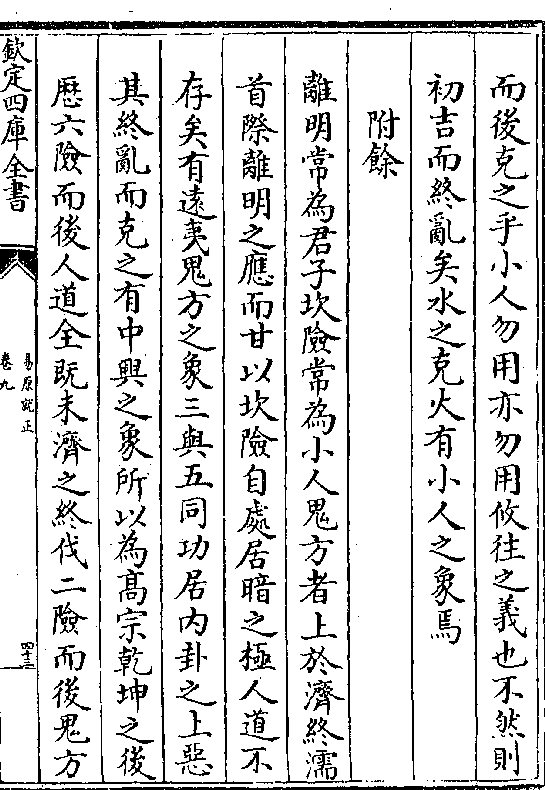 而後克之乎小人勿用亦勿用攸往之義也不然則
初吉而終亂矣水之克火有小人之象焉
附餘
離明常為君子坎險常為小人鬼方者上於濟終濡
首際離明之應而甘以坎險自處居暗之極人道不
存矣有遠夷鬼方之象三與五同功居内卦之上惡
其終亂而克之有中興之象所以為髙宗乾坤之後
歴六險而後人道全既未濟之終伐二險而後鬼方
欽定四庫全書
易原就正
卷九
四十三